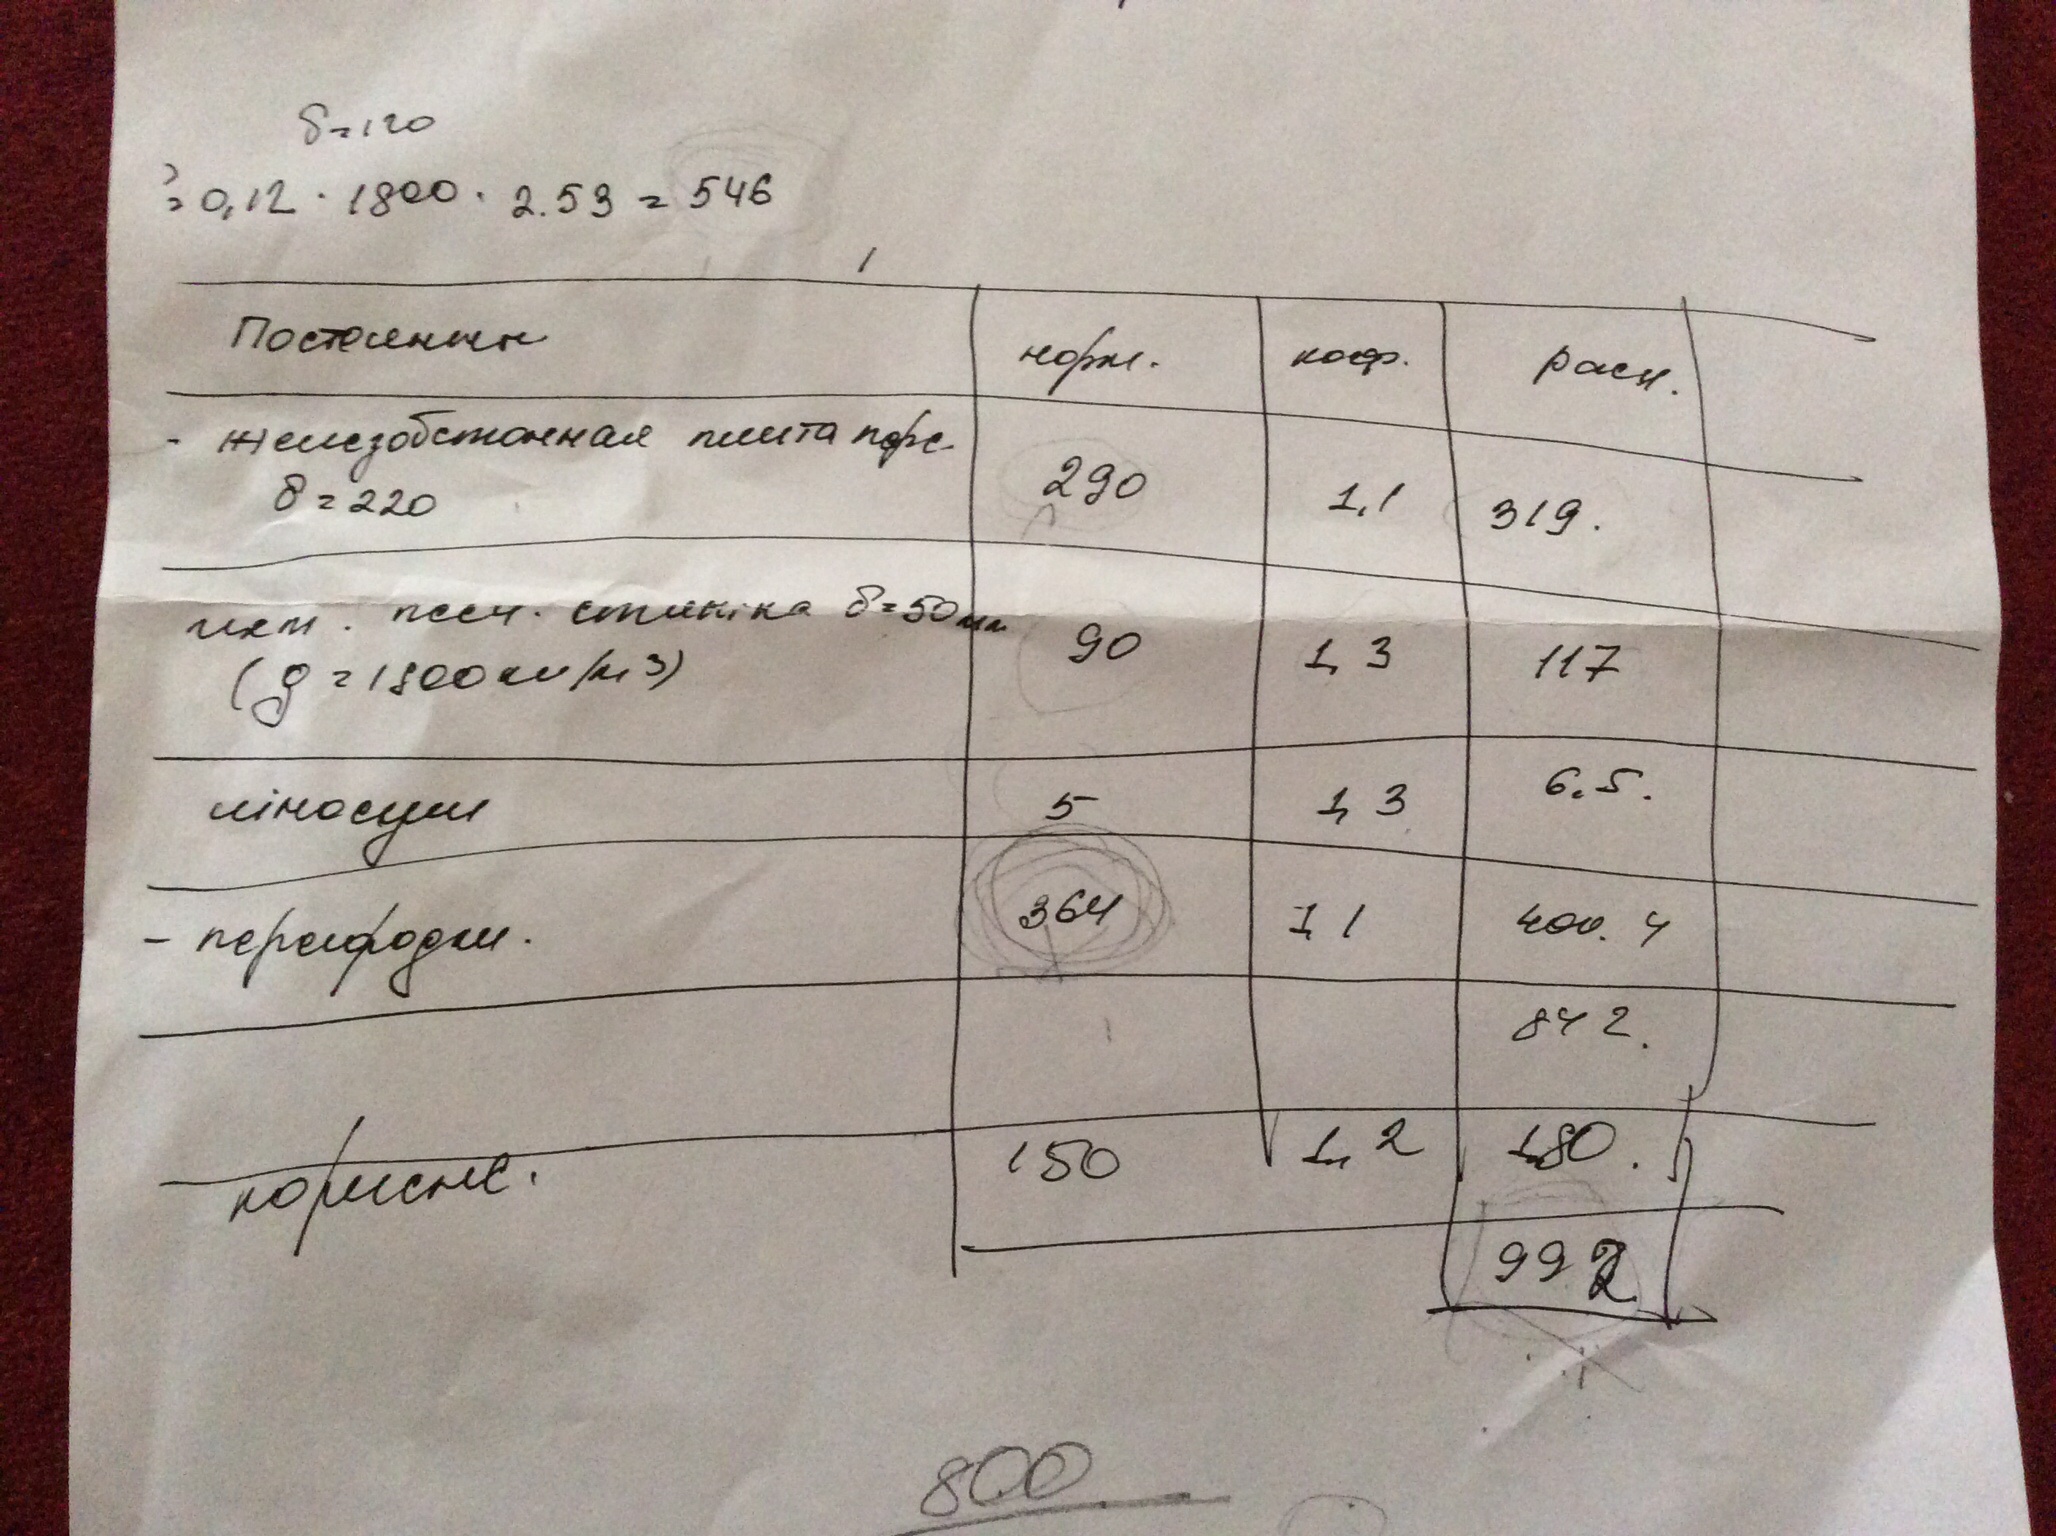 δ=120
= 0,12 · 1800 · 2.53 = 546
Постоянны норм. коэф. расч.
- железобетонная плита пере. 290 1,1 319.
δ=220
цем. песч. стяжка δ=50мм 90 1,3 117
(g=1800кг/м3)
ліносум 5 1,3 6.5.
- перегродки. 364 1,1 400.4
842.
корисне. 150 1,2 180.
992
800